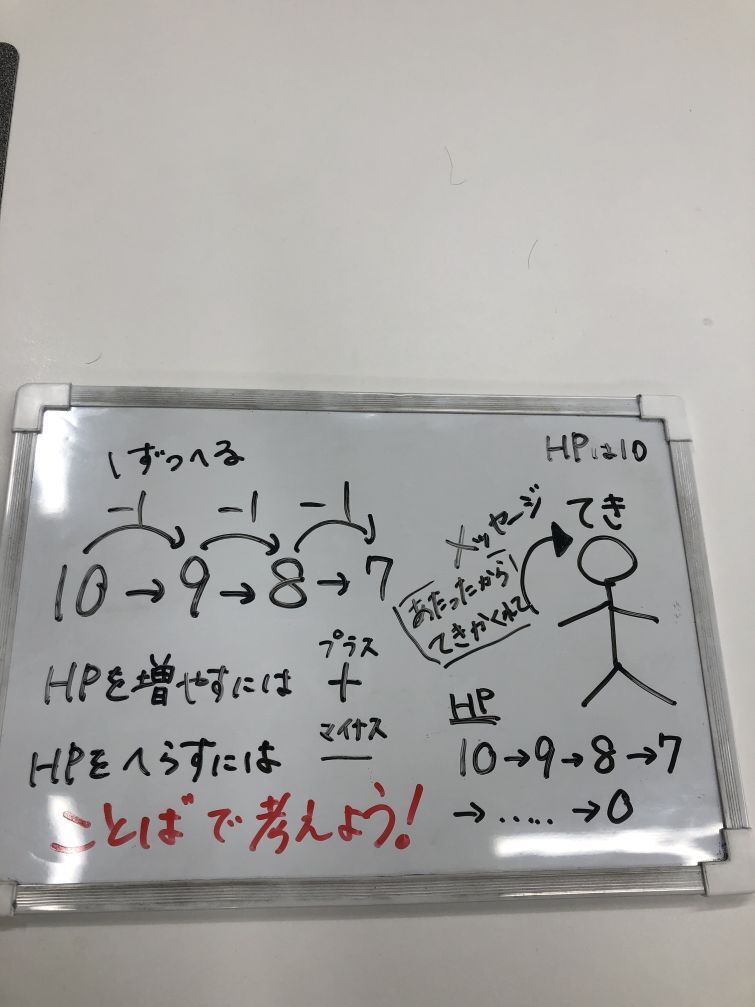 1ずつへる
-1 -1 -1
10→9→8→7
HPを増やすには プラス +
HPをへらすには マイナス −
ことばで考えよう!
HPは10
てき
メッセージ
あたったから
てきかくれて
HP
10→9→8→7
→.....→0